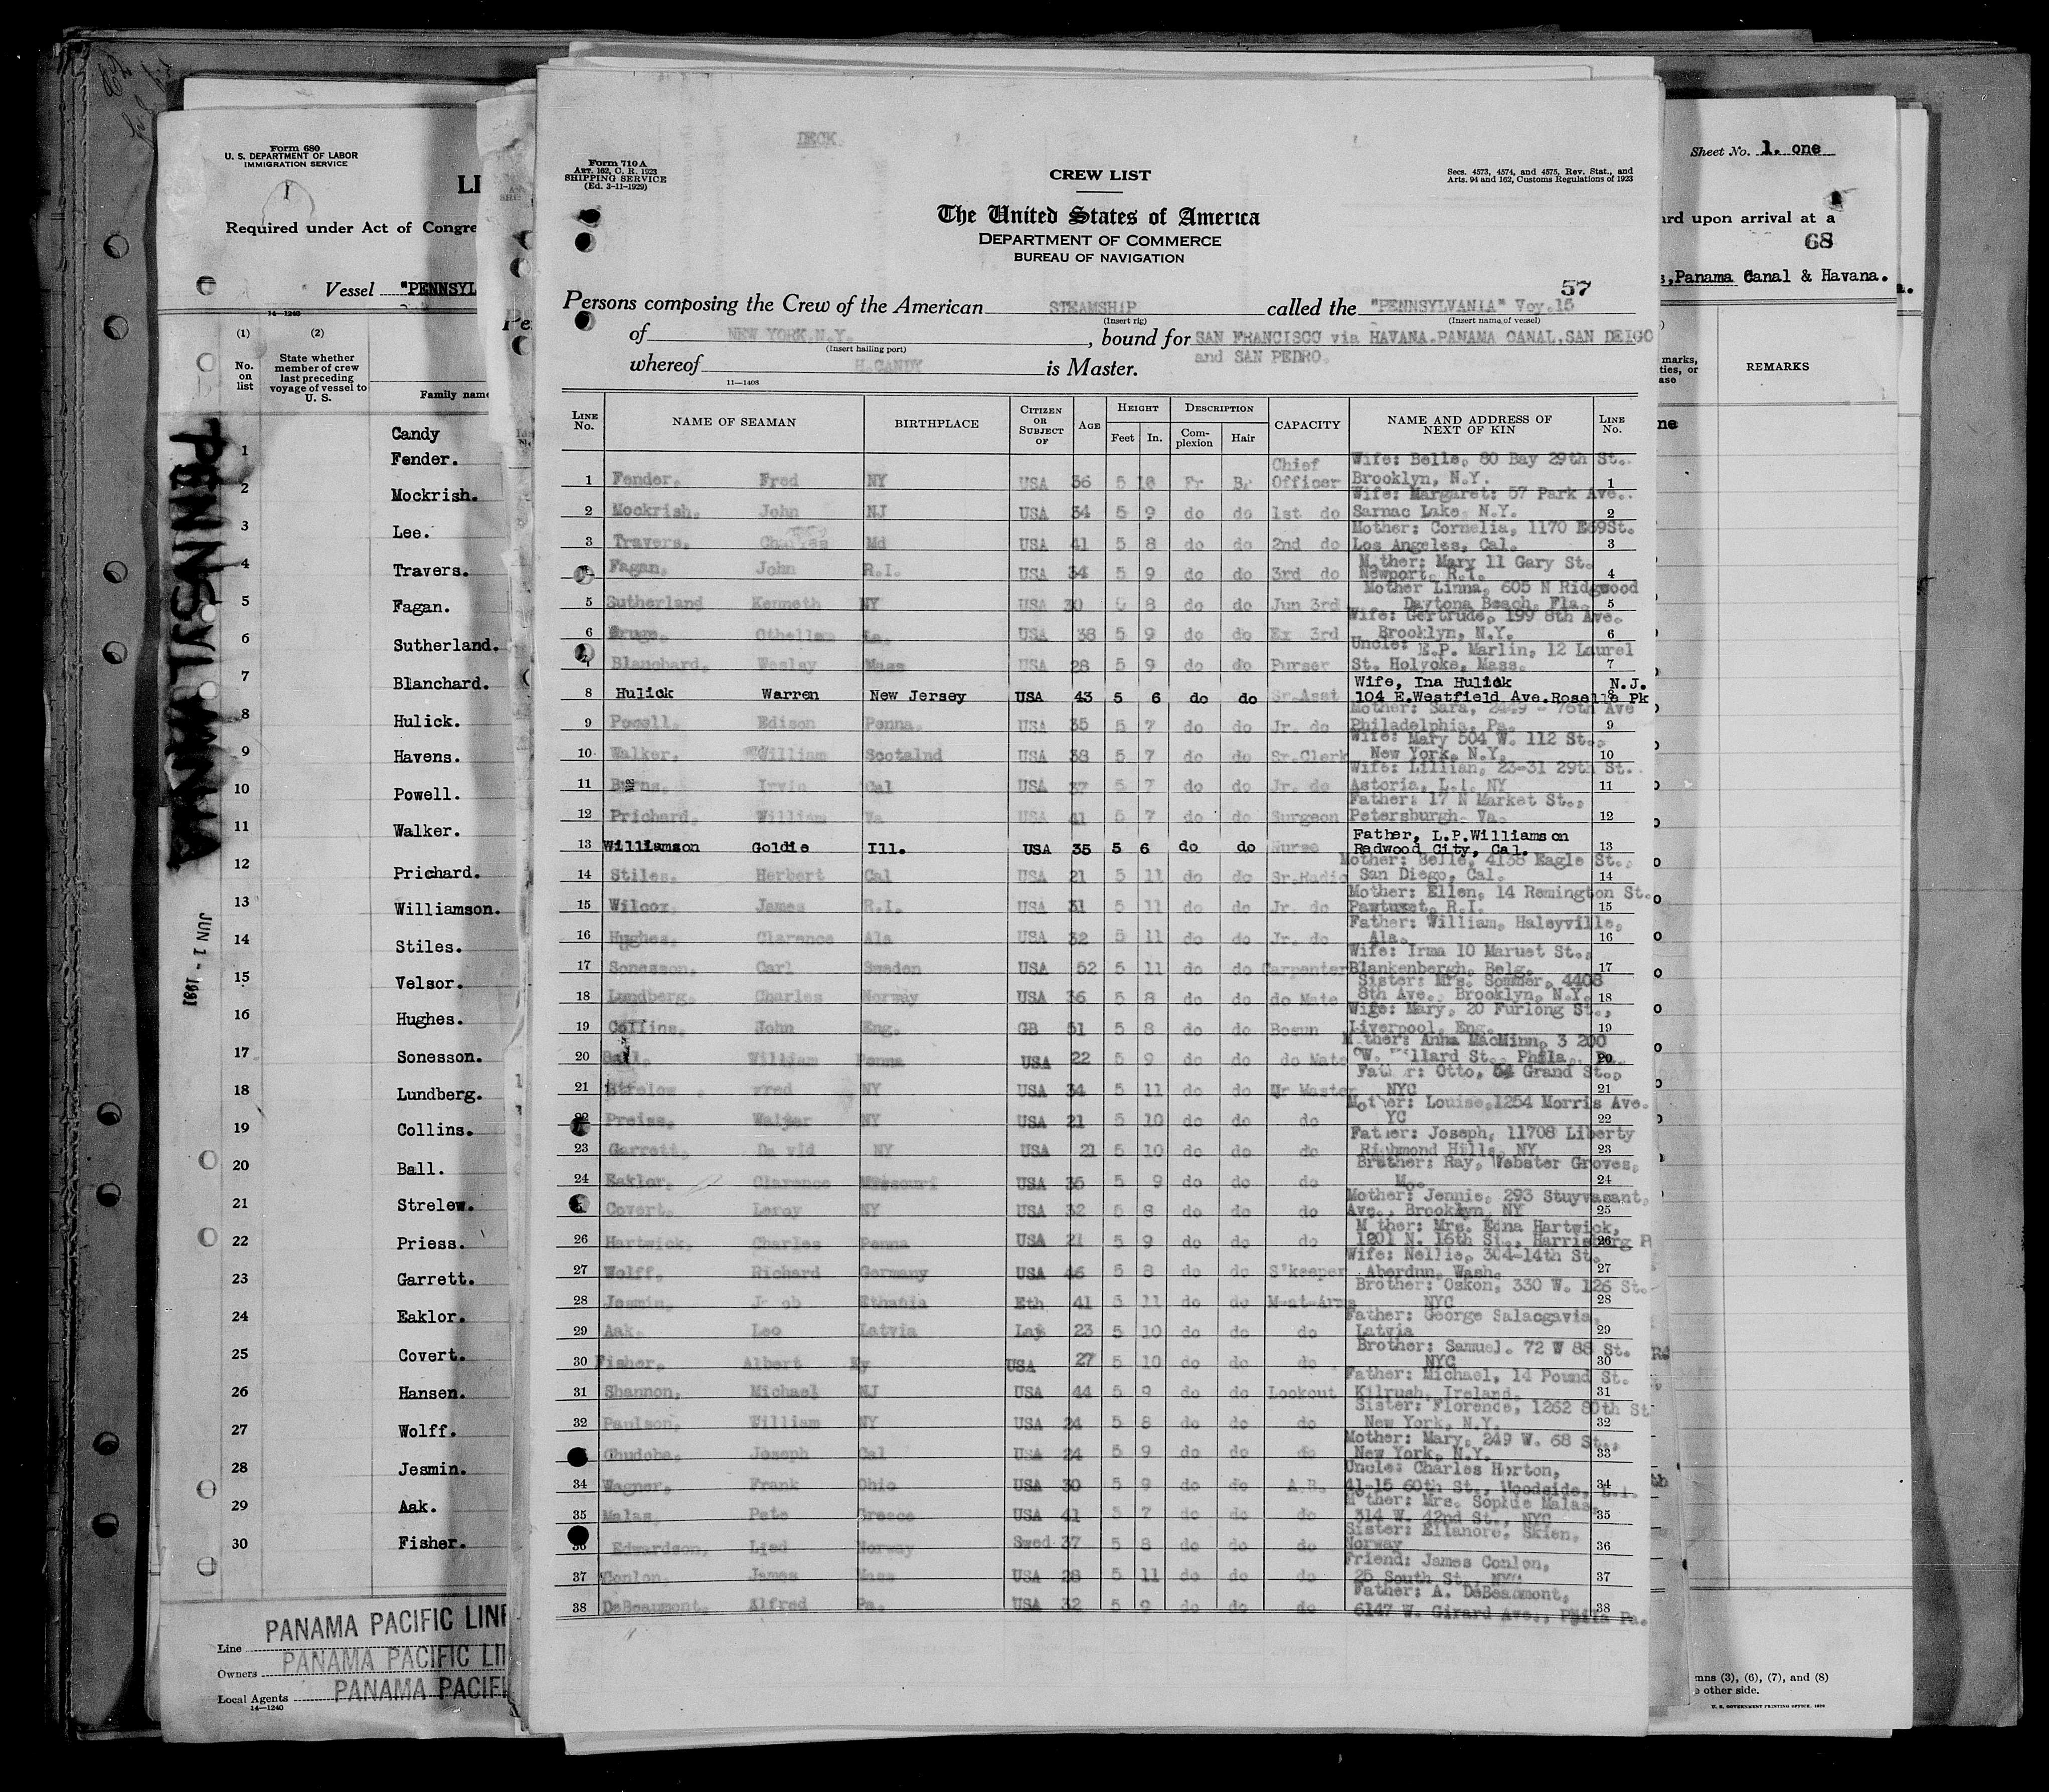 Form 680
U. S. DEPARTMENT OF LABOR
IMMIGRATION SERVICE
LI
Required under Act of Congre
Vessel "PENNSYL
14—1240
(1) (2)
No. on list
State whether member of crew last preceding voyage of vessel to U. S.
Family name
Candy
1 Fender.
2 Mockrish.
3 Lee.
4 Travers.
5 Fagan.
6 Sutherland.
7 Blanchard.
8 Hulick.
9 Havens.
10 Powell.
11 Walker.
12 Prichard.
13 Williamson.
14 Stiles.
15 Velsor.
16 Hughes.
17 Sonesson.
18 Lundberg.
19 Collins.
20 Ball.
21 Strelew.
22 Priess.
23 Garrett.
24 Eaklor.
25 Covert.
26 Hansen.
27 Wolff.
28 Jesmin.
29 Aak.
30 Fisher.
PENNSYLVANIA
JUN 1 - 1931
Line PANAMA PACIFIC LINE
Owners PANAMA PACIFIC LI
Local Agents PANAMA PACIF
14—1240
DECK
Form 710 A
ART. 162, C. R. 1923
SHIPPING SERVICE
(Ed. 3-11-1929)
CREW LIST
Secs. 4573, 4574, and 4575, Rev. Stat., and
Arts. 94 and 162, Customs Regulations of 1923
The United States of America
DEPARTMENT OF COMMERCE
BUREAU OF NAVIGATION
57
Persons composing the Crew of the American STEAMSHIP called the "PENNSYLVANIA" Voy.15
(Insert rig) (Insert name of vessel)
of NEW YORK,N.Y. , bound for SAN FRANCISCO via HAVANA.PANAMA CANAL,SAN DEIGO
(Insert hailing port) and SAN PEDRO.
whereof H.CANDY is Master.
11—1408
LINE No. NAME OF SEAMAN BIRTHPLACE CITIZEN OR SUBJECT OF AGE HEIGHT Feet In. DESCRIPTION Complexion Hair CAPACITY NAME AND ADDRESS OF NEXT OF KIN LINE No.
Chief Wife: Belle, 80 Bay 29th St.
1 Fender, Fred NY USA 36 5 Fr Br Officer Brooklyn, N.Y. 1
Wife: Margaret: 57 Park Ave.
2 Mockrish, John NJ USA 34 5 9 do do 1st do Sarnac Lake, N.Y. 2
Mother: Cornelia, 1170 E69St.
3 Travers, Charles Md USA 41 5 8 do do 2nd do Los Angeles, Cal. 3
Mother: Mary 11 Gary St.
Fagan, John R.I. USA 34 5 9 do do 3rd do Newport, R.I. 4
Mother Linna, 605 N Ridgwood
5 Sutherland Kenneth NY USA 30 5 8 do do Jun 3rd Daytona Beach, Fla. 5
Wife: Gertrude, 199 8th Ave.
6 USA 38 5 9 do do Ex 3rd Brooklyn, N.Y. 6
Uncle: E.P. Marlin, 12 Laurel
Blanchard, Wesley Mass USA 28 5 9 do do Purser St. Holyoke, Mass. 7
Wife, Ina Hulick N.J.
8 Hulick Warren New Jersey USA 43 5 6 do do Sr.Asst 104 E.Westfield Ave.Roselle Pk
Mother: Sara, 2449 - 76th Ave
9 Powell, Edison Penna. USA 35 5 7 do do Jr. do Philadelphia, Pa. 9
Wife: Mary 504 W. 112 St.,
10 Walker, William Scotalnd USA 38 5 7 do do Sr.Clerk New York, N.Y. 10
Wife: Lillian, 23-31 29th St.
11 Irvin Cal USA 37 5 7 do do Jr. do Astoria, L.I. NY 11
Father: 17 N Market St.,
12 Prichard, William Va USA 41 5 7 do do Surgeon Petersburgh, Va. 12
Father, L.P.Williamson
13 Williamson Goldie Ill. USA 35 5 6 do do Nurse Redwood City, Cal. 13
Mother: Belle, 4138 Eagle St.,
14 Stiles, Herbert Cal USA 21 5 11 do do Sr.Radio San Diego, Cal. 14
Mother: Ellen, 14 Remington St.
15 Wilcox, James R.I. USA 31 5 11 do do Jr. do Pawtuxet, R.I. 15
Father: William, Haleyville,
16 Hughes, Clarence Ala USA 32 5 11 do do Jr. do Ala. 16
Wife: Irma 10 Maruet St.,
17 Sonesson, Carl Sweden USA 52 5 11 do do Carpenter Blankenbergh, Belg. 17
Sister: Mrs. Sommer, 4408
18 Lundberg, Charles Norway USA 36 5 8 do do do Mate 8th Ave., Brooklyn, N.Y. 18
Wife: Mary, 20 Furlong St.,
19 Collins, John Eng. GB 51 5 8 do do Bosun Liverpool, Eng. 19
Mother: Anna MacMinn, 3 200
20 Ball, William Penna USA 22 5 9 do do do Mate W. Willard St., Phila., Pa. 20
Father: Otto, 54 Grand St.,
21 Strelow Fred NY USA 34 5 11 do do Qr Master NYC 21
Mother: Louise,1254 Morris Ave.
22 Preiss, Walter NY USA 21 5 10 do do do YC 22
Father: Joseph, 11708 Liberty
23 Garrett, David NY USA 21 5 10 do do do Richmond Hills, NY 23
Brother: Ray, Webster Groves,
24 Eaklor, Clarence Missouri USA 35 5 9 do do do Mo. 24
Mother: Jennie, 293 Stuyvasant,
Covert, Leroy NY USA 32 5 8 do do do Ave., Brooklyn, NY 25
Mother: Mrs. Edna Hartwick,
26 Hartwick, Charles Penna USA 21 5 9 do do do 1201 N. 16th St., Harrisburg P
Wife: Nellie, 304-14th St.
27 Wolff, Richard Germany USA 46 5 8 do do S'keeper Aberdun, Wash. 27
Brother: Oskon, 330 W. 126 St.
28 Jesmin, Jacob Ethania Eth 41 5 11 do do M-at-Arms NYC 28
Father: George Salacgavis,
29 Aak, Leo Latvia 23 5 10 do do do Latvia 29
Brother: Samuel. 72 W 88 St.
30 Fisher, Albert Ky USA 27 5 10 do do do NYC 30
Father: Michael, 14 Pound St.
31 Shannon, Michael NJ USA 44 5 9 do do Lookout Kilrush, Ireland. 31
Sister: Florence, 1262 80th St
32 Paulson, William NY USA 24 5 8 do do do New York, N.Y. 32
Mother: Mary, 249 W. 68 St.,
Chudoba, Joseph Cal USA 24 5 9 do do do New York, N.Y. 33
Uncle: Charles Horton,
34 Wagner, Frank Ohio USA 30 5 9 do do A.B. 41-15 60th St., Woodside, L.I. 34
Mother: Mrs. Sophie Malas,
35 Malas, Pete Greece USA 41 5 7 do do do 314 W. 42nd St., NYC 35
Sister: Ellanore, Skien,
36 Edwardson, Lied Norway Swed 37 5 8 do do do Norway 36
Friend: James Conlon,
37 Conlon, James Mass USA 28 5 11 do do do 25 South St., NYC 37
Father: A. DeBeaumont,
38 DeBeaumont, Alfred Pa. USA 32 5 9 do do do 6147 W. Girard Ave., Phila Pa. 38
Sheet No. 1. one
ard upon arrival at a
68
s,Panama Canal & Havana.
marks,
ties, or
ase
REMARKS
ne
mns (3), (6), (7), and (8)
e other side.
U. S. GOVERNMENT PRINTING OFFICE